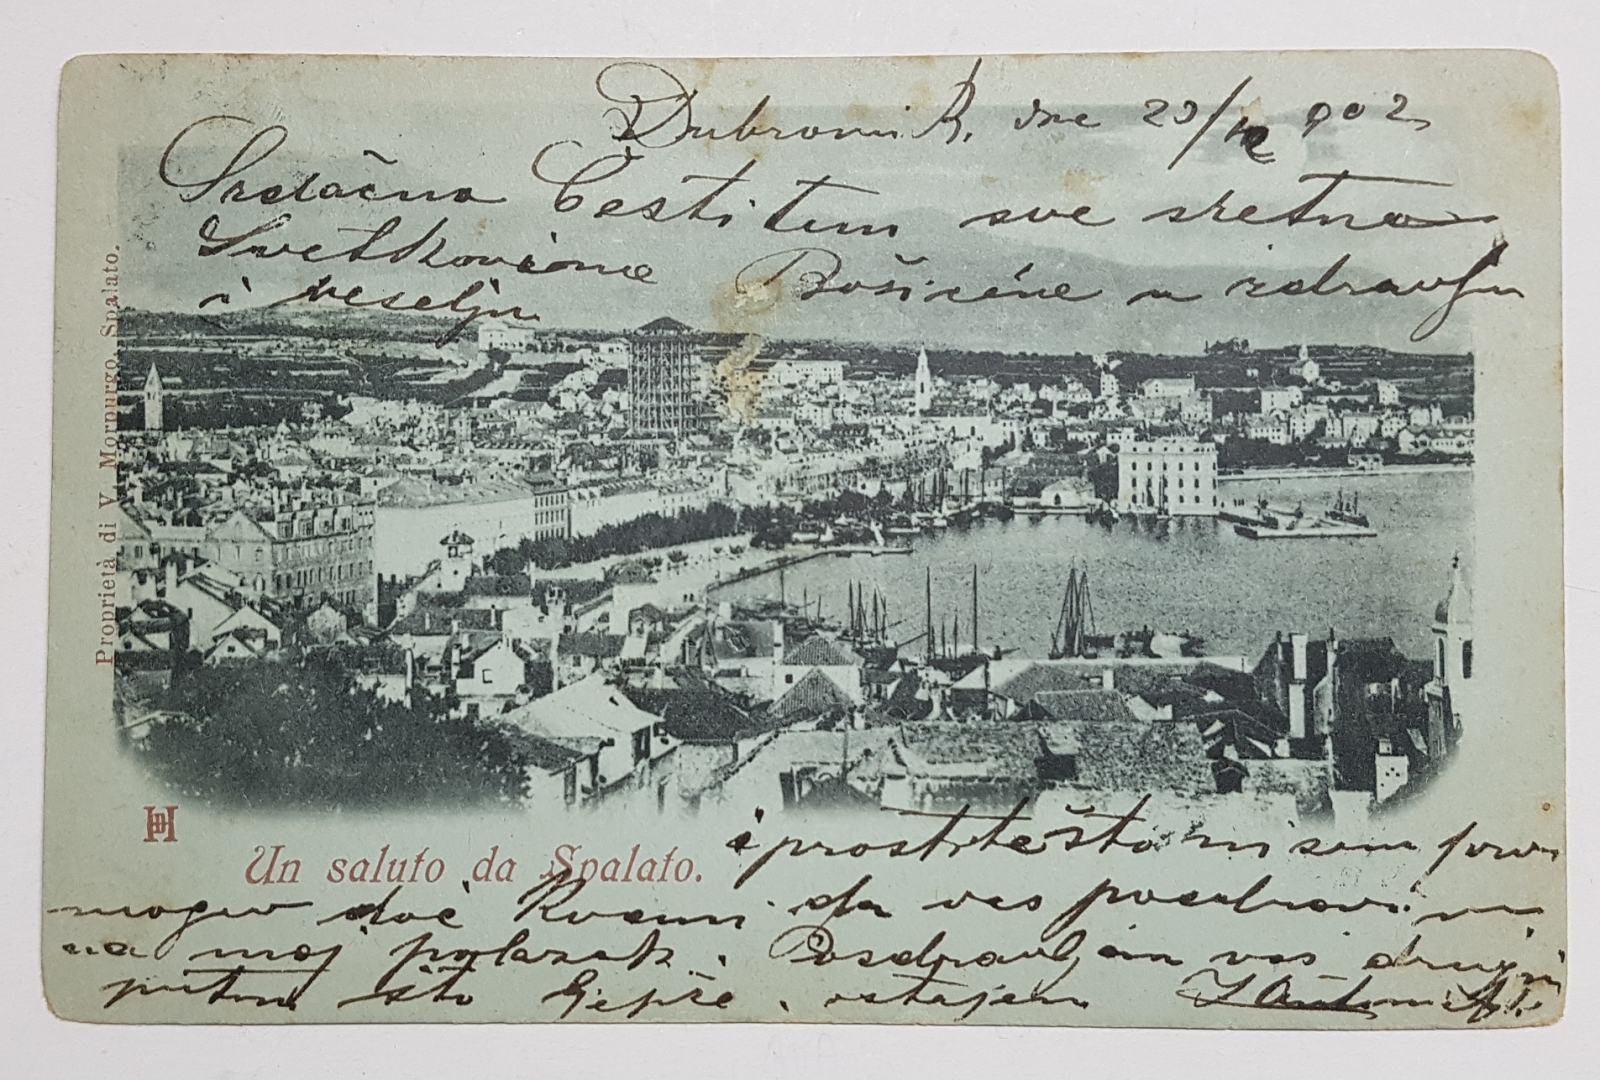 Dubrovnik, dne 23/12 902
Srdačno Čestitam sve sretne
Svetkovine Božićne u zdravlju
i veselju
Proprietà di V. Morpurgo, Spalato.
Un saluto da Spalato.
i prostite što ni sam
mogu doć da vas
na moj polazak. Pozdravljam vas drugi
putem što ljepše. ostajem